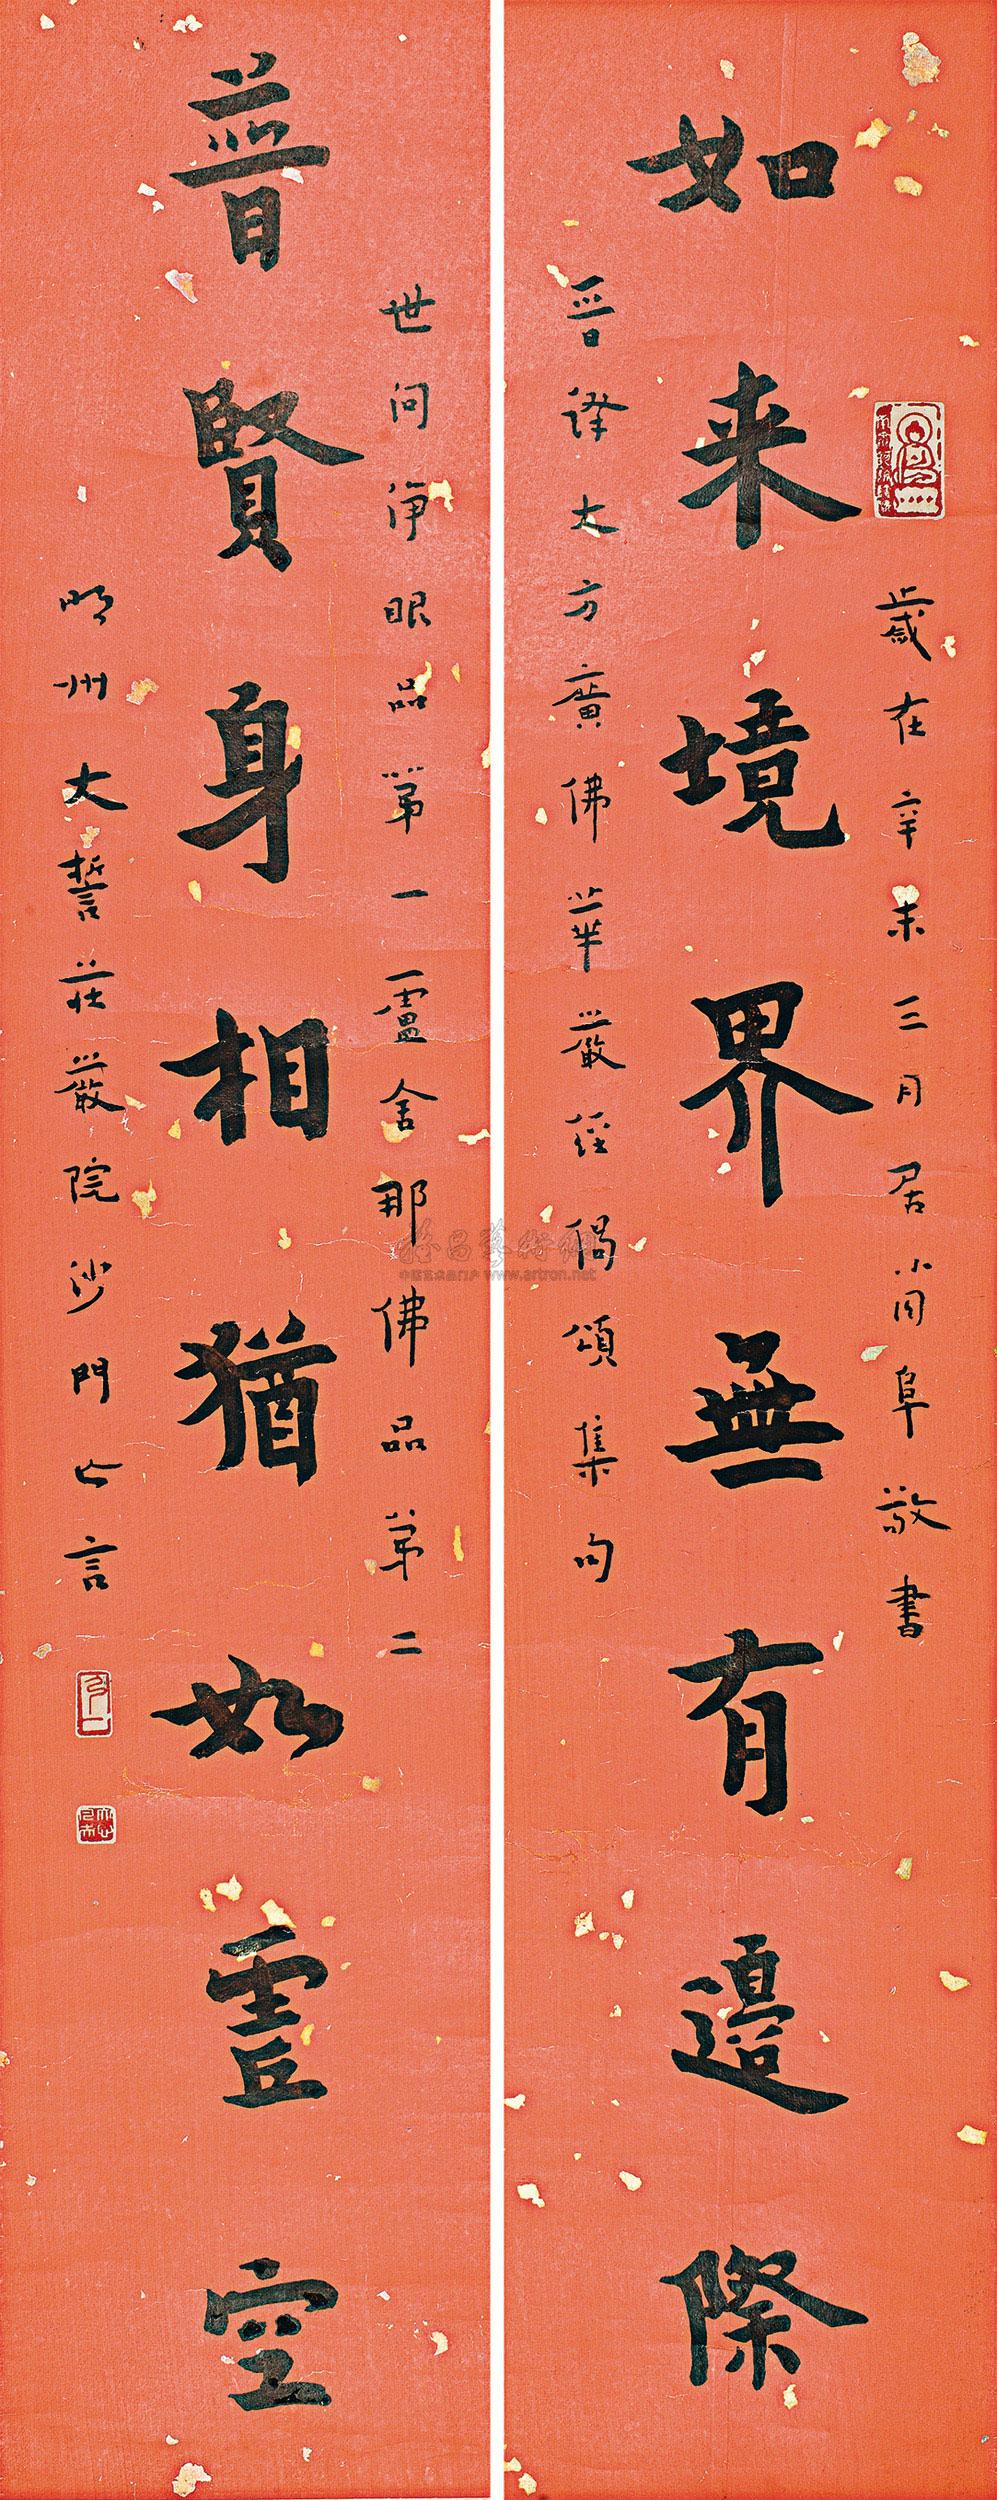 歲在辛未三月居尚阜敬書
如来境界無有邊際
晉譯大方廣佛華嚴經偈頌集句
世间淨眼品第一盧舍那佛品第二
普賢身相猶如虛空
明州大誓莊嚴院沙門亡言
www.artron.net